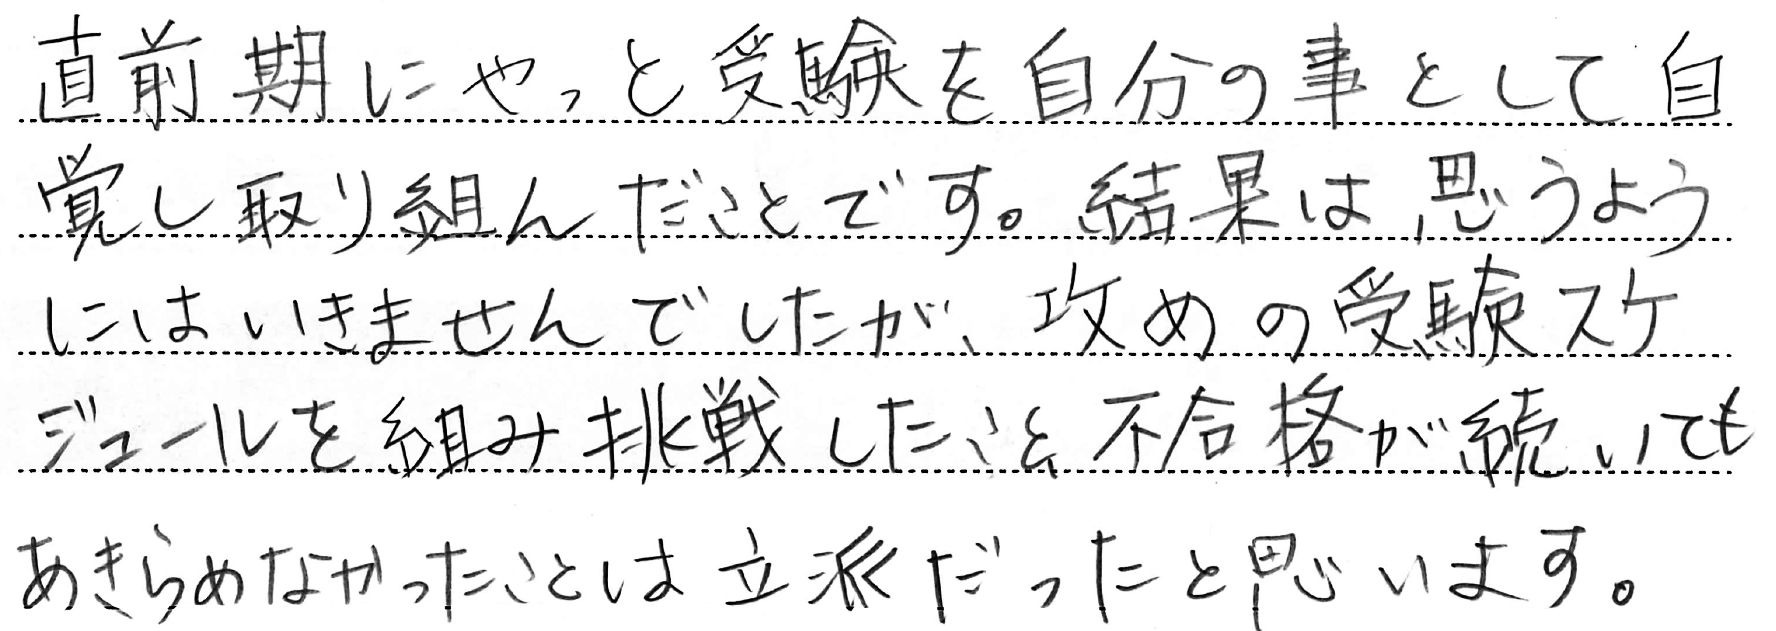 直前期にやっと受験を自分の事として自
覚し取り組んだことです。結果は思うよう
にはいきませんでしたが、攻めの受験スケ
ジュールを組み挑戦したこと、不合格が続いても
あきらめなかったことは立派だったと思います。